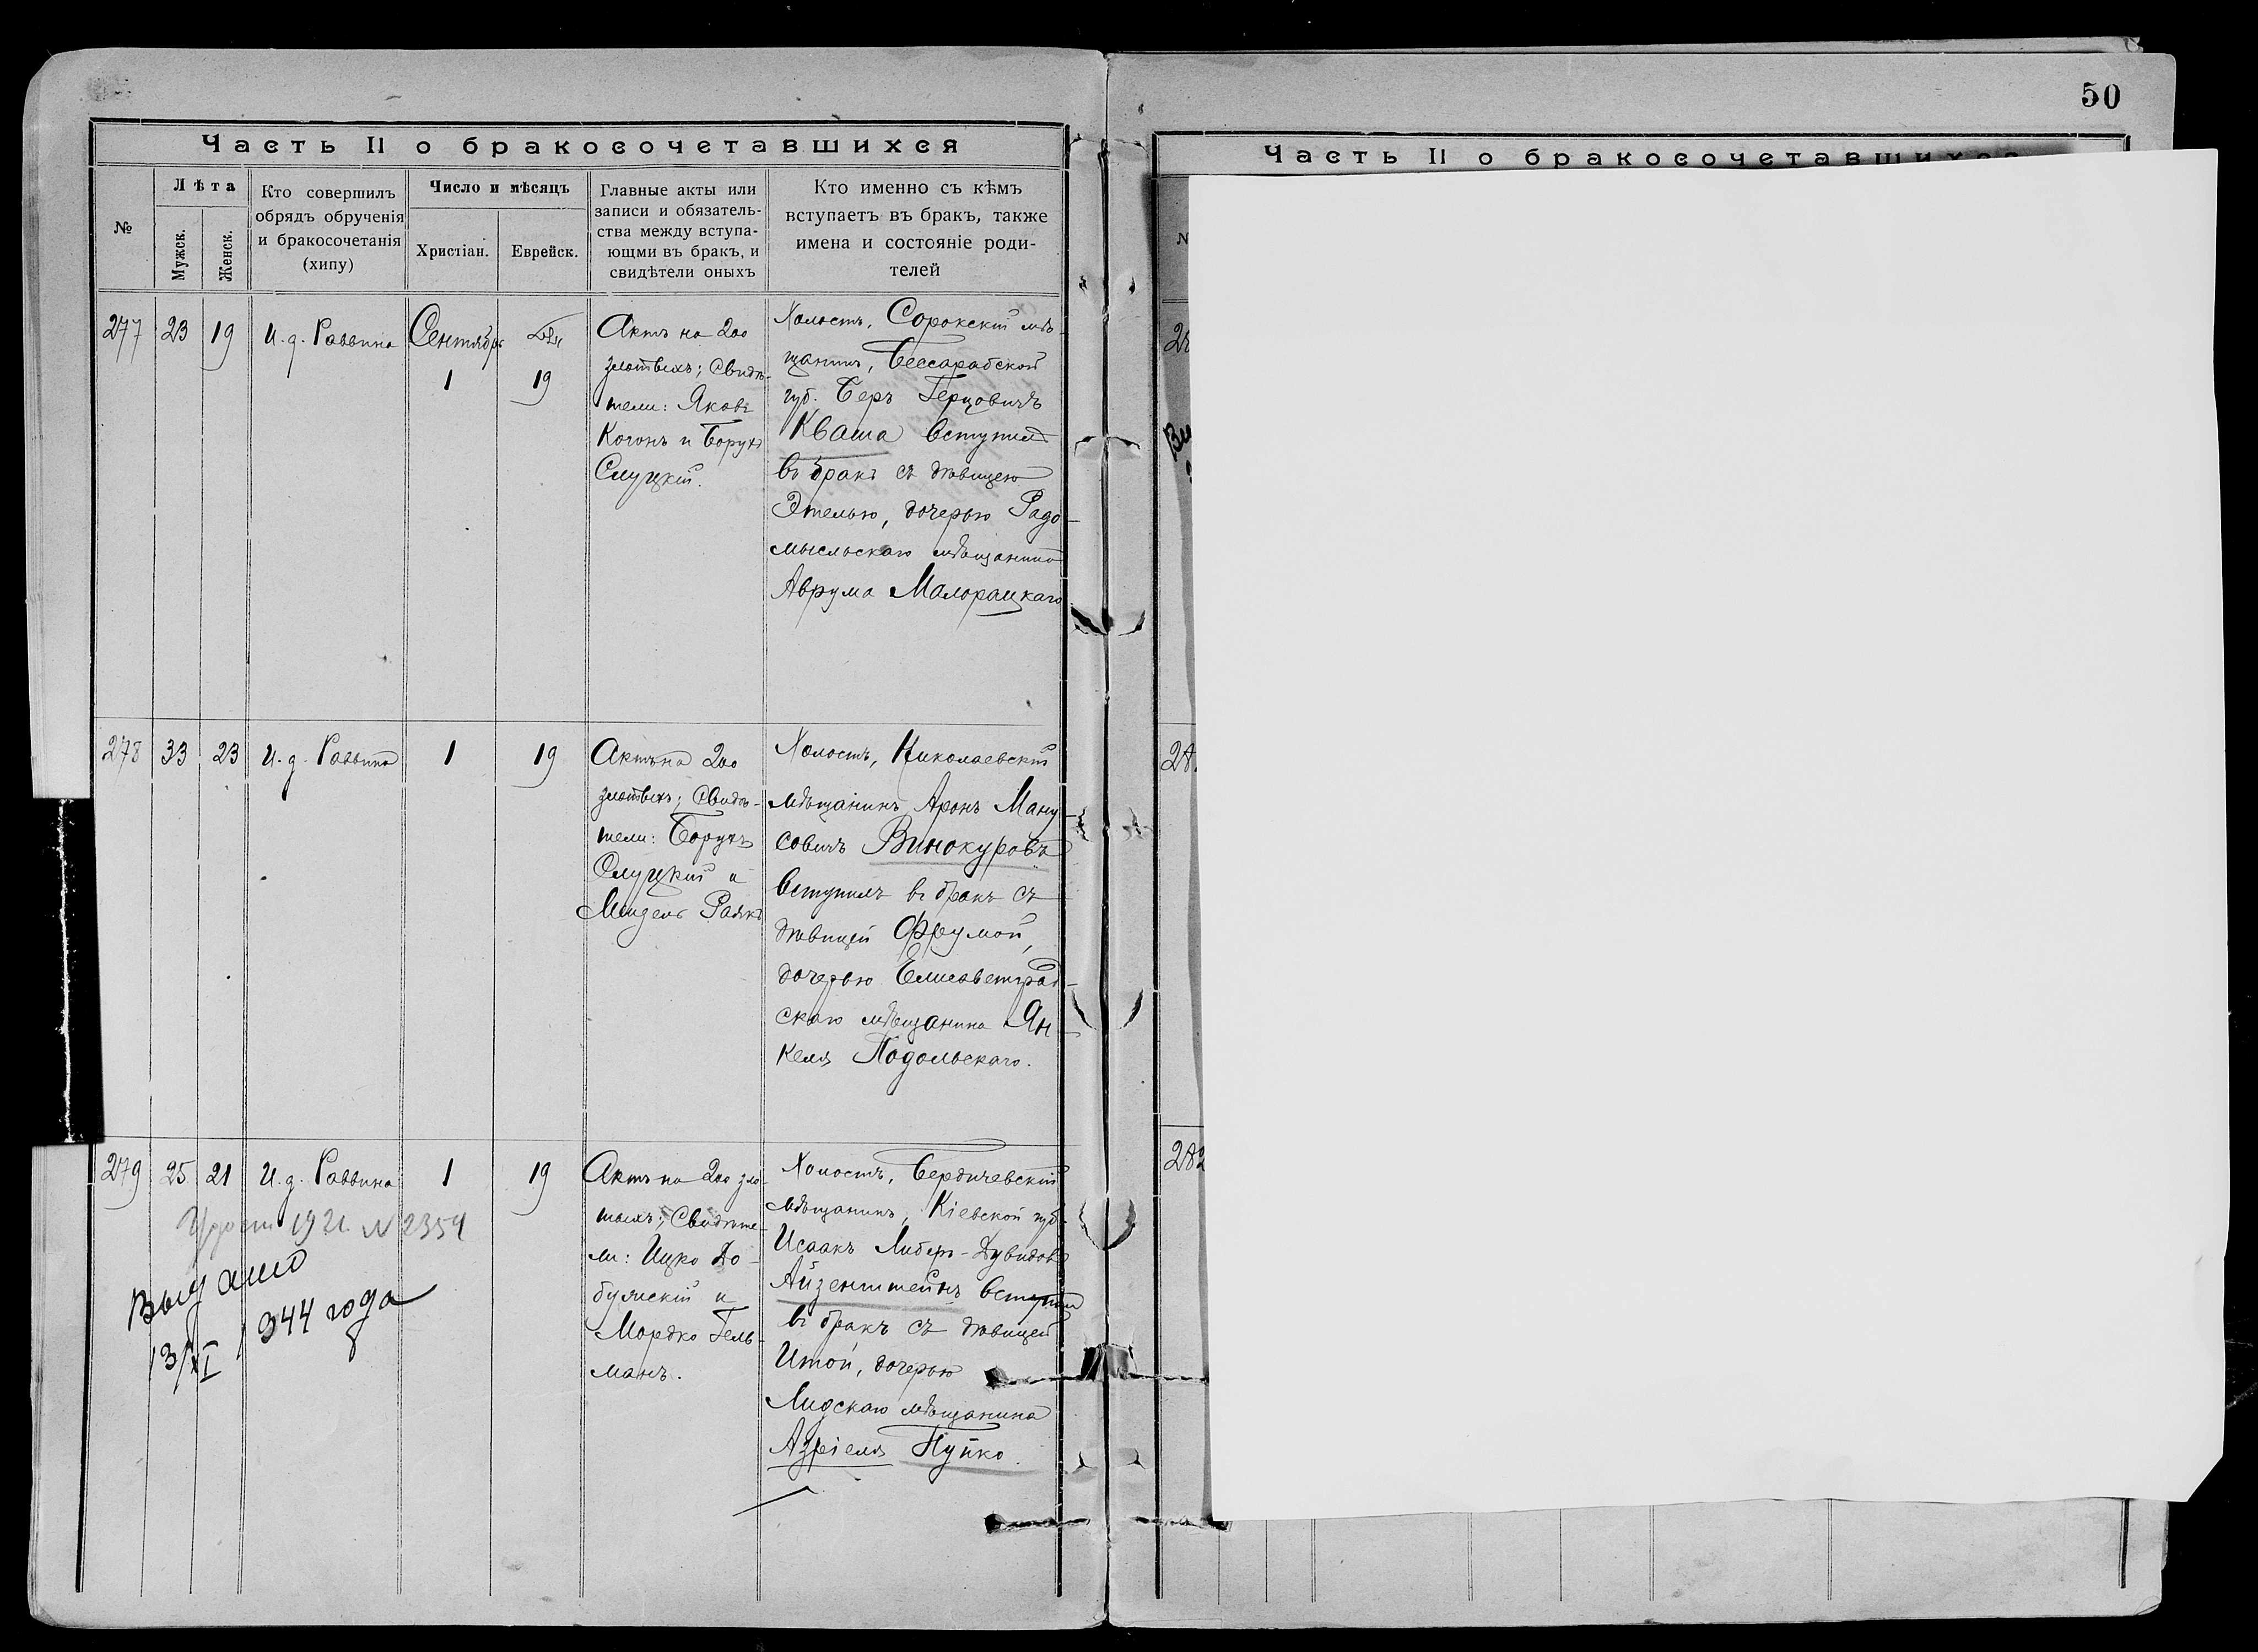 50
Часть II о бракосочетавшихся
№
Лѣта
Мужск.
Женск.
Кто совершилъ
обрядъ обрученія
и бракосочетанія
(хипу)
Число и мѣсяцъ
Христіан.
Еврейск.
Главные акты или
записи и обязатель-
ства между вступа-
ющми въ бракъ, и
свидѣтели оныхъ
Кто именно съ кѣмъ
вступаетъ въ бракъ, также
имена и состояніе роди-
телей
277
23
19
И. д. Раввина
Сентябрь
1
19
Актъ на 200
злотыхъ; Свидѣ-
тели: Яковъ
Когонъ и Борухъ
Слуцкій.
Холостъ, Сорокскій мѣ-
щанинъ, Бессарабской
губ. Беръ Герцовичъ
Кваша вступилъ
въ бракъ съ дѣвицею
Этелью, дочерью Радо-
мысльскаго мѣщанина
Аврума Малорацкаго
278
33
23
И. д. Раввина
1
19
Актъ на 200
злотыхъ; Свидѣ-
тели: Борухъ
Слуцкій и
Мендель
Холостъ, Николаевскій
мѣщанинъ Аронъ Ману-
совичъ Винокуровъ
вступилъ въ бракъ съ
дѣвицей Фрумой,
дочерью Елисаветград-
скаго мѣщанина Ян-
келя Подольскаго.
279
25
21
И. д. Раввина
1
19
Актъ на 200 зло-
тыхъ; Свидѣте-
ли: Ицко До-
булискій и
Мордко Гель-
манъ.
Холостъ, Бердичевскій
мѣщанинъ, Кіевской губ.
Исаакъ Либеръ-Дувидовъ
Айзенштейнъ вступилъ
въ бракъ съ дѣвицей
Итой, дочерью
Лидскаго мѣщанина
Азріеля Пупко.
1921. N 2354
Выдано
13/XI 1944 года
Часть II о бракосочетавшихся
282